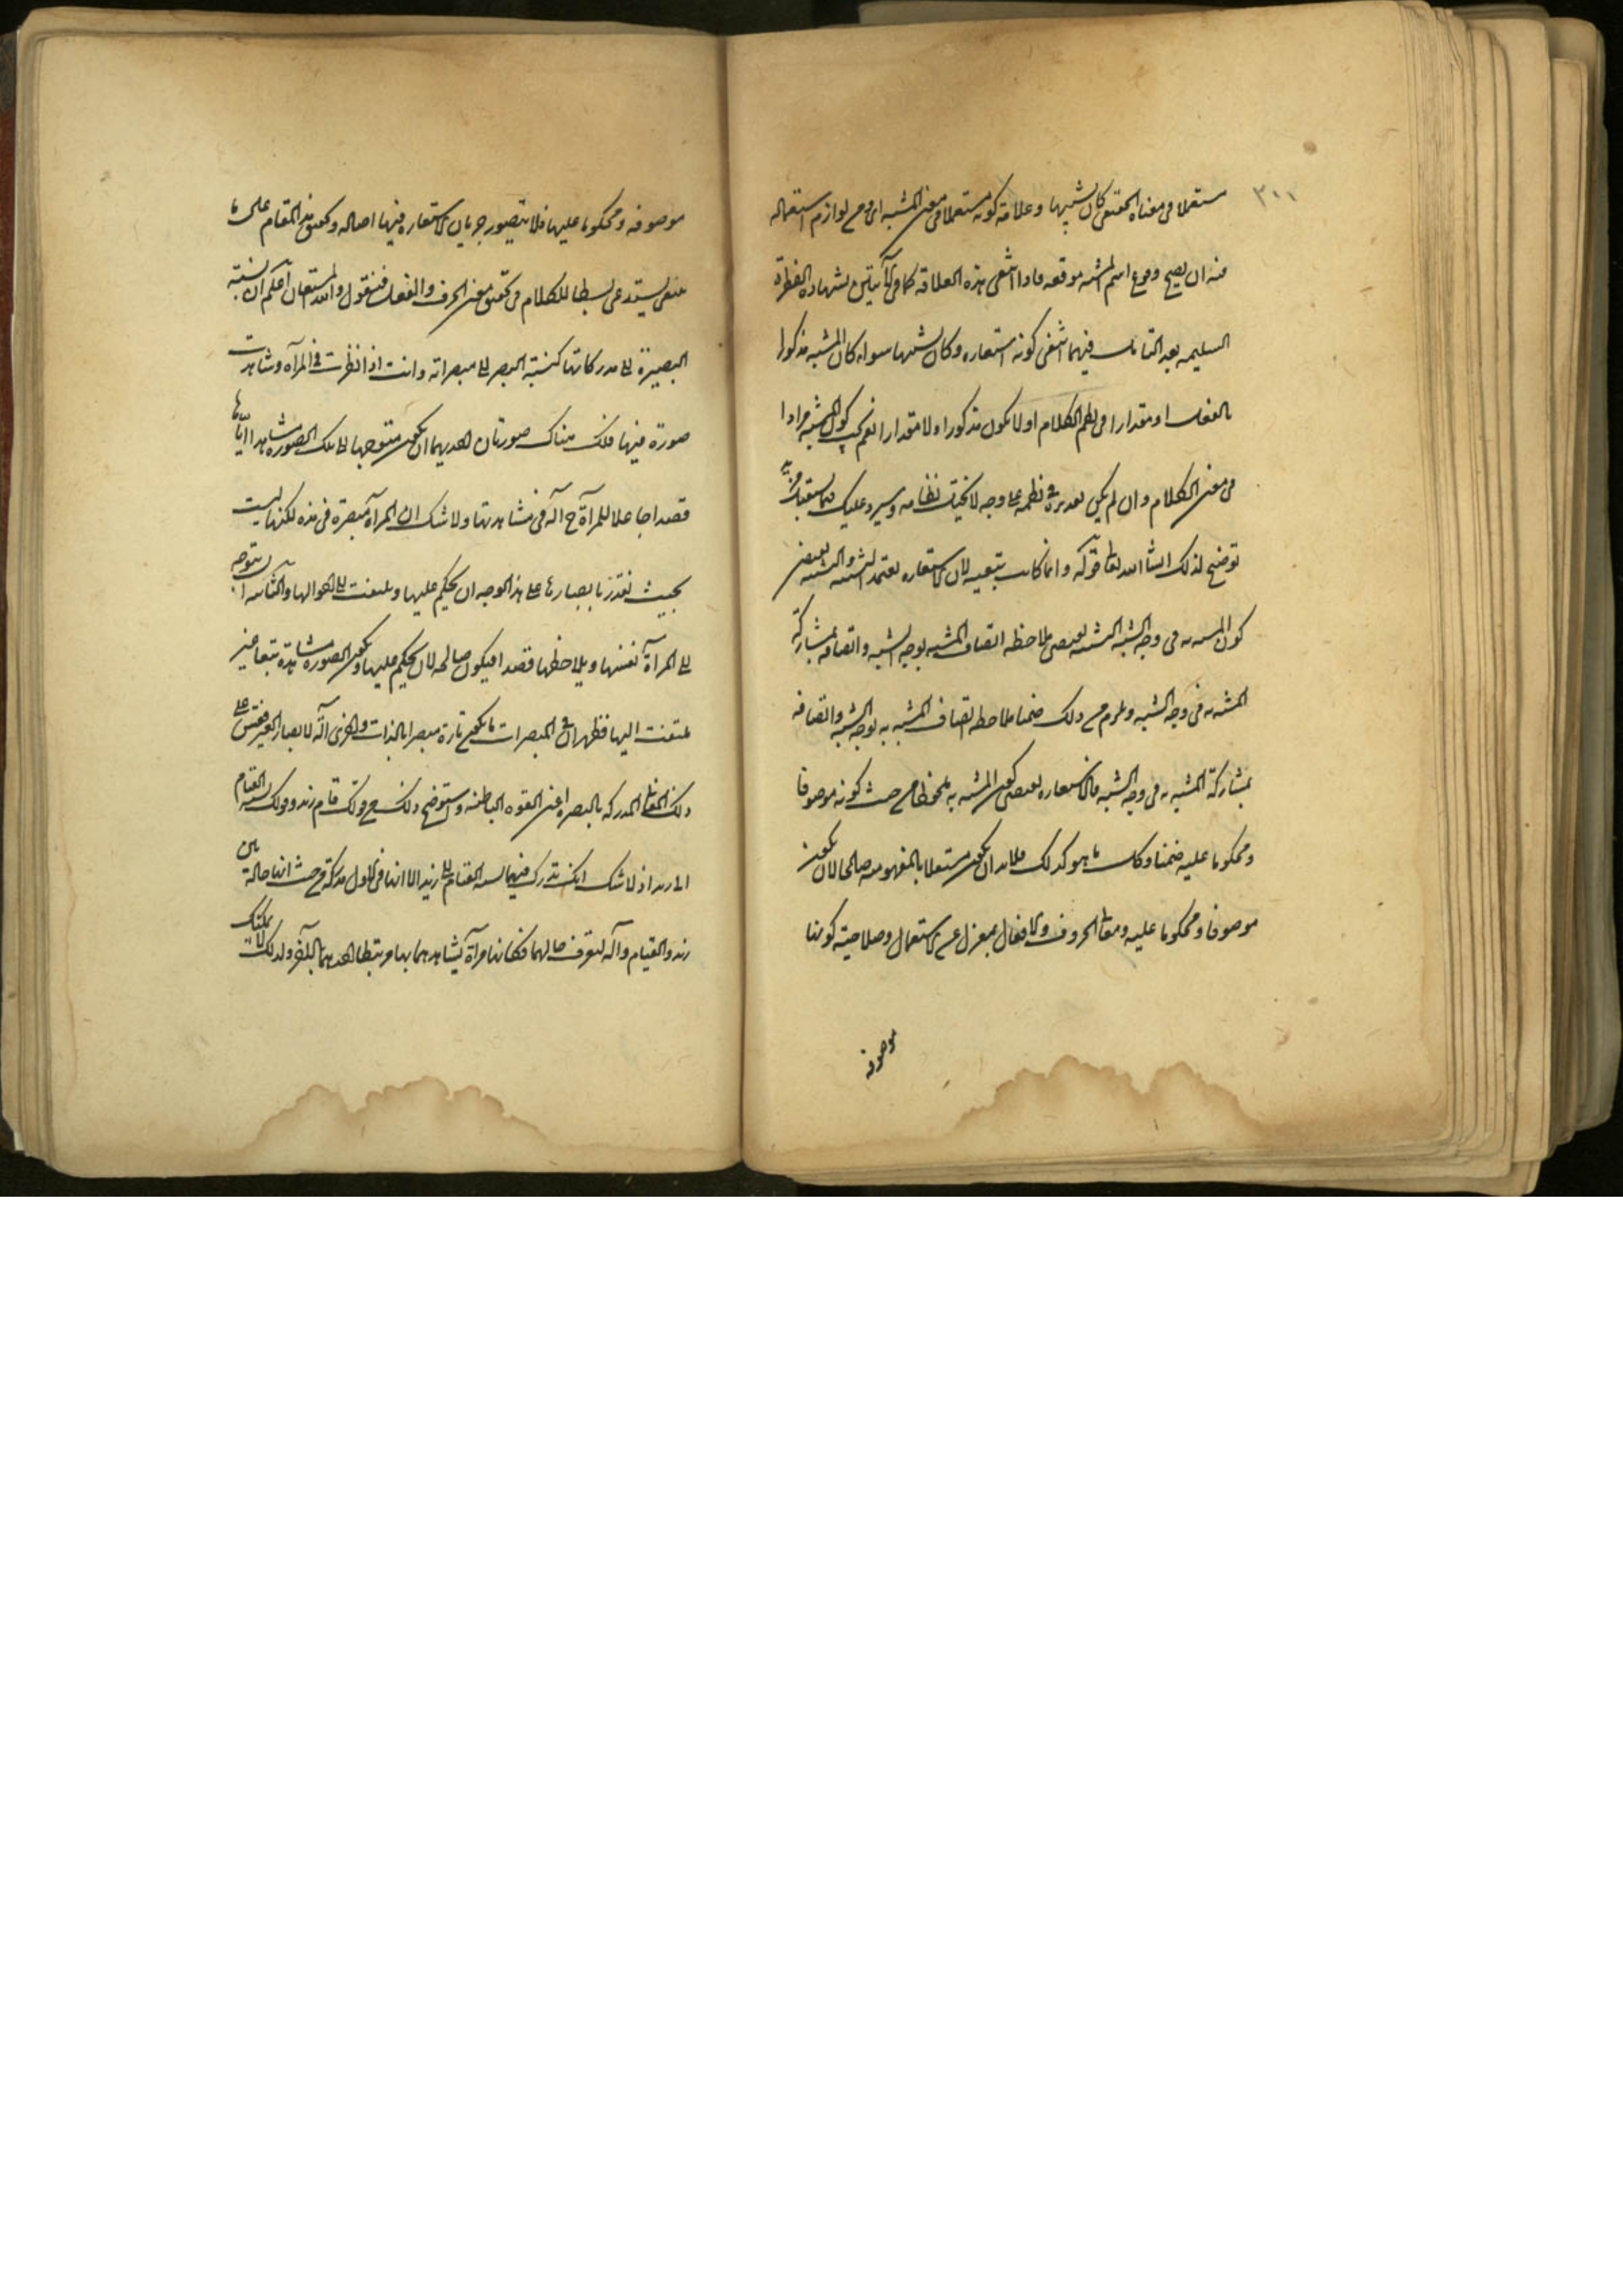 ٣٠١
مستعملا فى معناه الحقيقى كان تشبيها وعلامة كونه مستعملا فى معنى المشبه اى ومن لوازم استعماله
فيه ان يصح وقوع اسم المشبه موقعه فاذا انتفى هذه العلامة كما فى الآيتين بشهادة الفطرة
السليمه بعد التامل فيهما انتفى كونه استعاره وكان تشبيها سواء كان المشبه مذكورا
بالفعل او مقدرا فى نظم الكلام او لا يكون مذكورا ولا مقدرا نعم يجب كون المشبه مرادا
فى معنى الكلام وان لم يكن تقديره فى نظمه على وجه لا يختل نظامه وسيرد عليك فيما يستقبل مزيد
توضيح لذلك انشا الله تعالى قوله وانما كانت تبعيه لان الاستعاره تعتمد التشبيه والتشبيه يقتضى
كون المشبه فى وجه الشبه التشبيه يقتضى ملاحظه اتصاف المشبه بوجه الشبه واتصافه بمشاركة
المشبه به فى وجه الشبه ويلزم من ذلك ضمنا ملاحظه اتصاف المشبه به بوجه الشبه واتصافه
بمشاركة المشبه له فى وجه الشبه فالاستعاره يقتضى كون المشبه به ملحوظا من حيث كونه موصوفا
ومحكوما عليه ضمنا وكل ما هو كذلك فلا بد ان يكون مستقلا بالمفهوميه صالحا لان يكون
موصوفا ومحكوما عليه ومعانى الحروف والافعال بمعزل عن الاستقلال وصلاحيته كونها
موصوفه
موصوفه ومحكوما عليها فلا يتصور جريان الاستعاره فيها اصاله وتحقيق هذا المقام على ما
ينبغى يستدعى بسطا للكلام فى تحقيق معنى الحرف والفعل فنقول والله المستعان اعلم ان نسبة
البصيرة الى مدركاتها كنسبة البصر الى مبصراته وانت اذا نظرت فى المرآة وشاهدت
صورة فيها فلك هناك صورتان احديهما ان يكون متوجها الى تلك الصورة مشاهدا اياها
قصدا جاعلا للمرآة ح آله فى مشاهدتها ولا شك ان المرآة مبصرة فى هذه لكنها ليست
بحيث تقدر بابصارها على هذا الوجه ان يحكم عليها ويلتفت الى احوالها والثانيه ان يتوجه
الى المرآة نفسها ويلاحظها قصدا فيكون صالحه لان يحكم عليها ويكون الصورة مشاهدة تبعا غير
ملتفت اليها فظهر ان فى المبصرات ما يكون تارة مبصرا بالذات واخرى آلة لابصار الغير فقس على
ذلك المعانى المدركه بالبصيره اعنى القوه الباطنه واستوضح ذلك من قولك قام زيد وقولك نسبه القيام
الى زيد اذ لا شك انك تدرك فيهما نسبه القيام الى زيد الا انها فى الاول مدركة من حيث انها حالة بين
زيد والقيام وآلة لتعرف حالهما فكانها مرآة يشاهدهما بها مرتبطا احدهما بالآخر ولذلك لا يمكنك